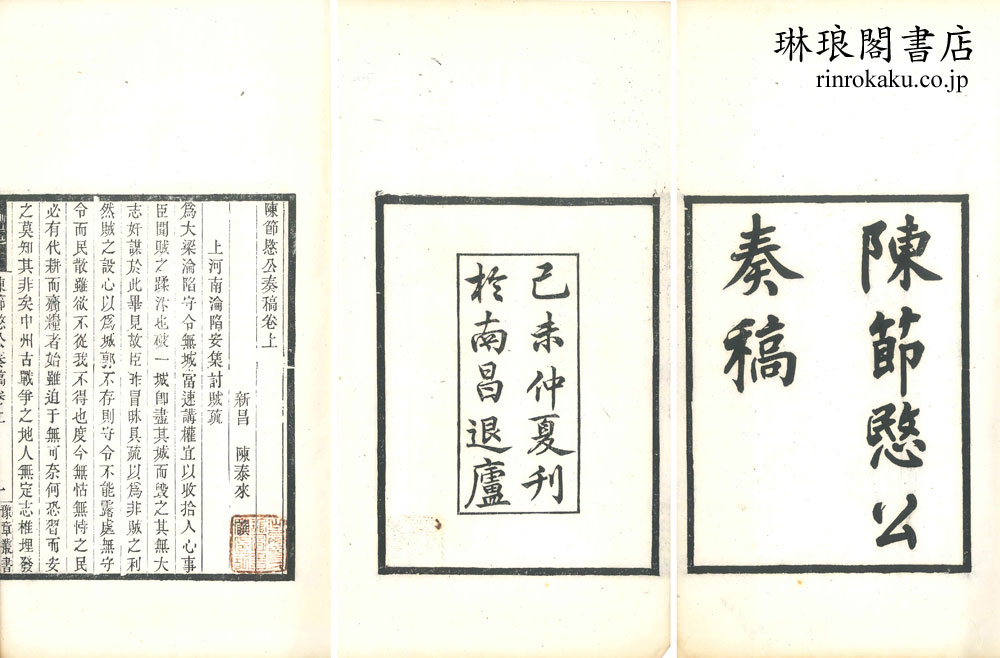 琳琅閣書店
rinrokaku.co.jp
陳節愍公
奏稿
己未仲夏刊
於南昌退廬
陳節愍公奏稿卷上
新昌 陳泰來 譔
上河南淪陷妥集討賊疏
為大梁淪陷守令無城當速講權宜以收拾人心事
臣聞賊之蹂汴也破一城即盡其城而毀之其無大
志奸謀於此畢見故臣昨冒昧具疏以為非賊之利
然賊之設心以為城郭不存則守令不能露處無守
令而民散雖欲不從我不得也度今無怙無恃之民
必有代耕而齎糧者始雖迫于無可奈何恐習而安
之莫知其非矣中州古戰爭之地人無定志椎埋發
陳節愍公奏稿卷上 一 豫章叢書